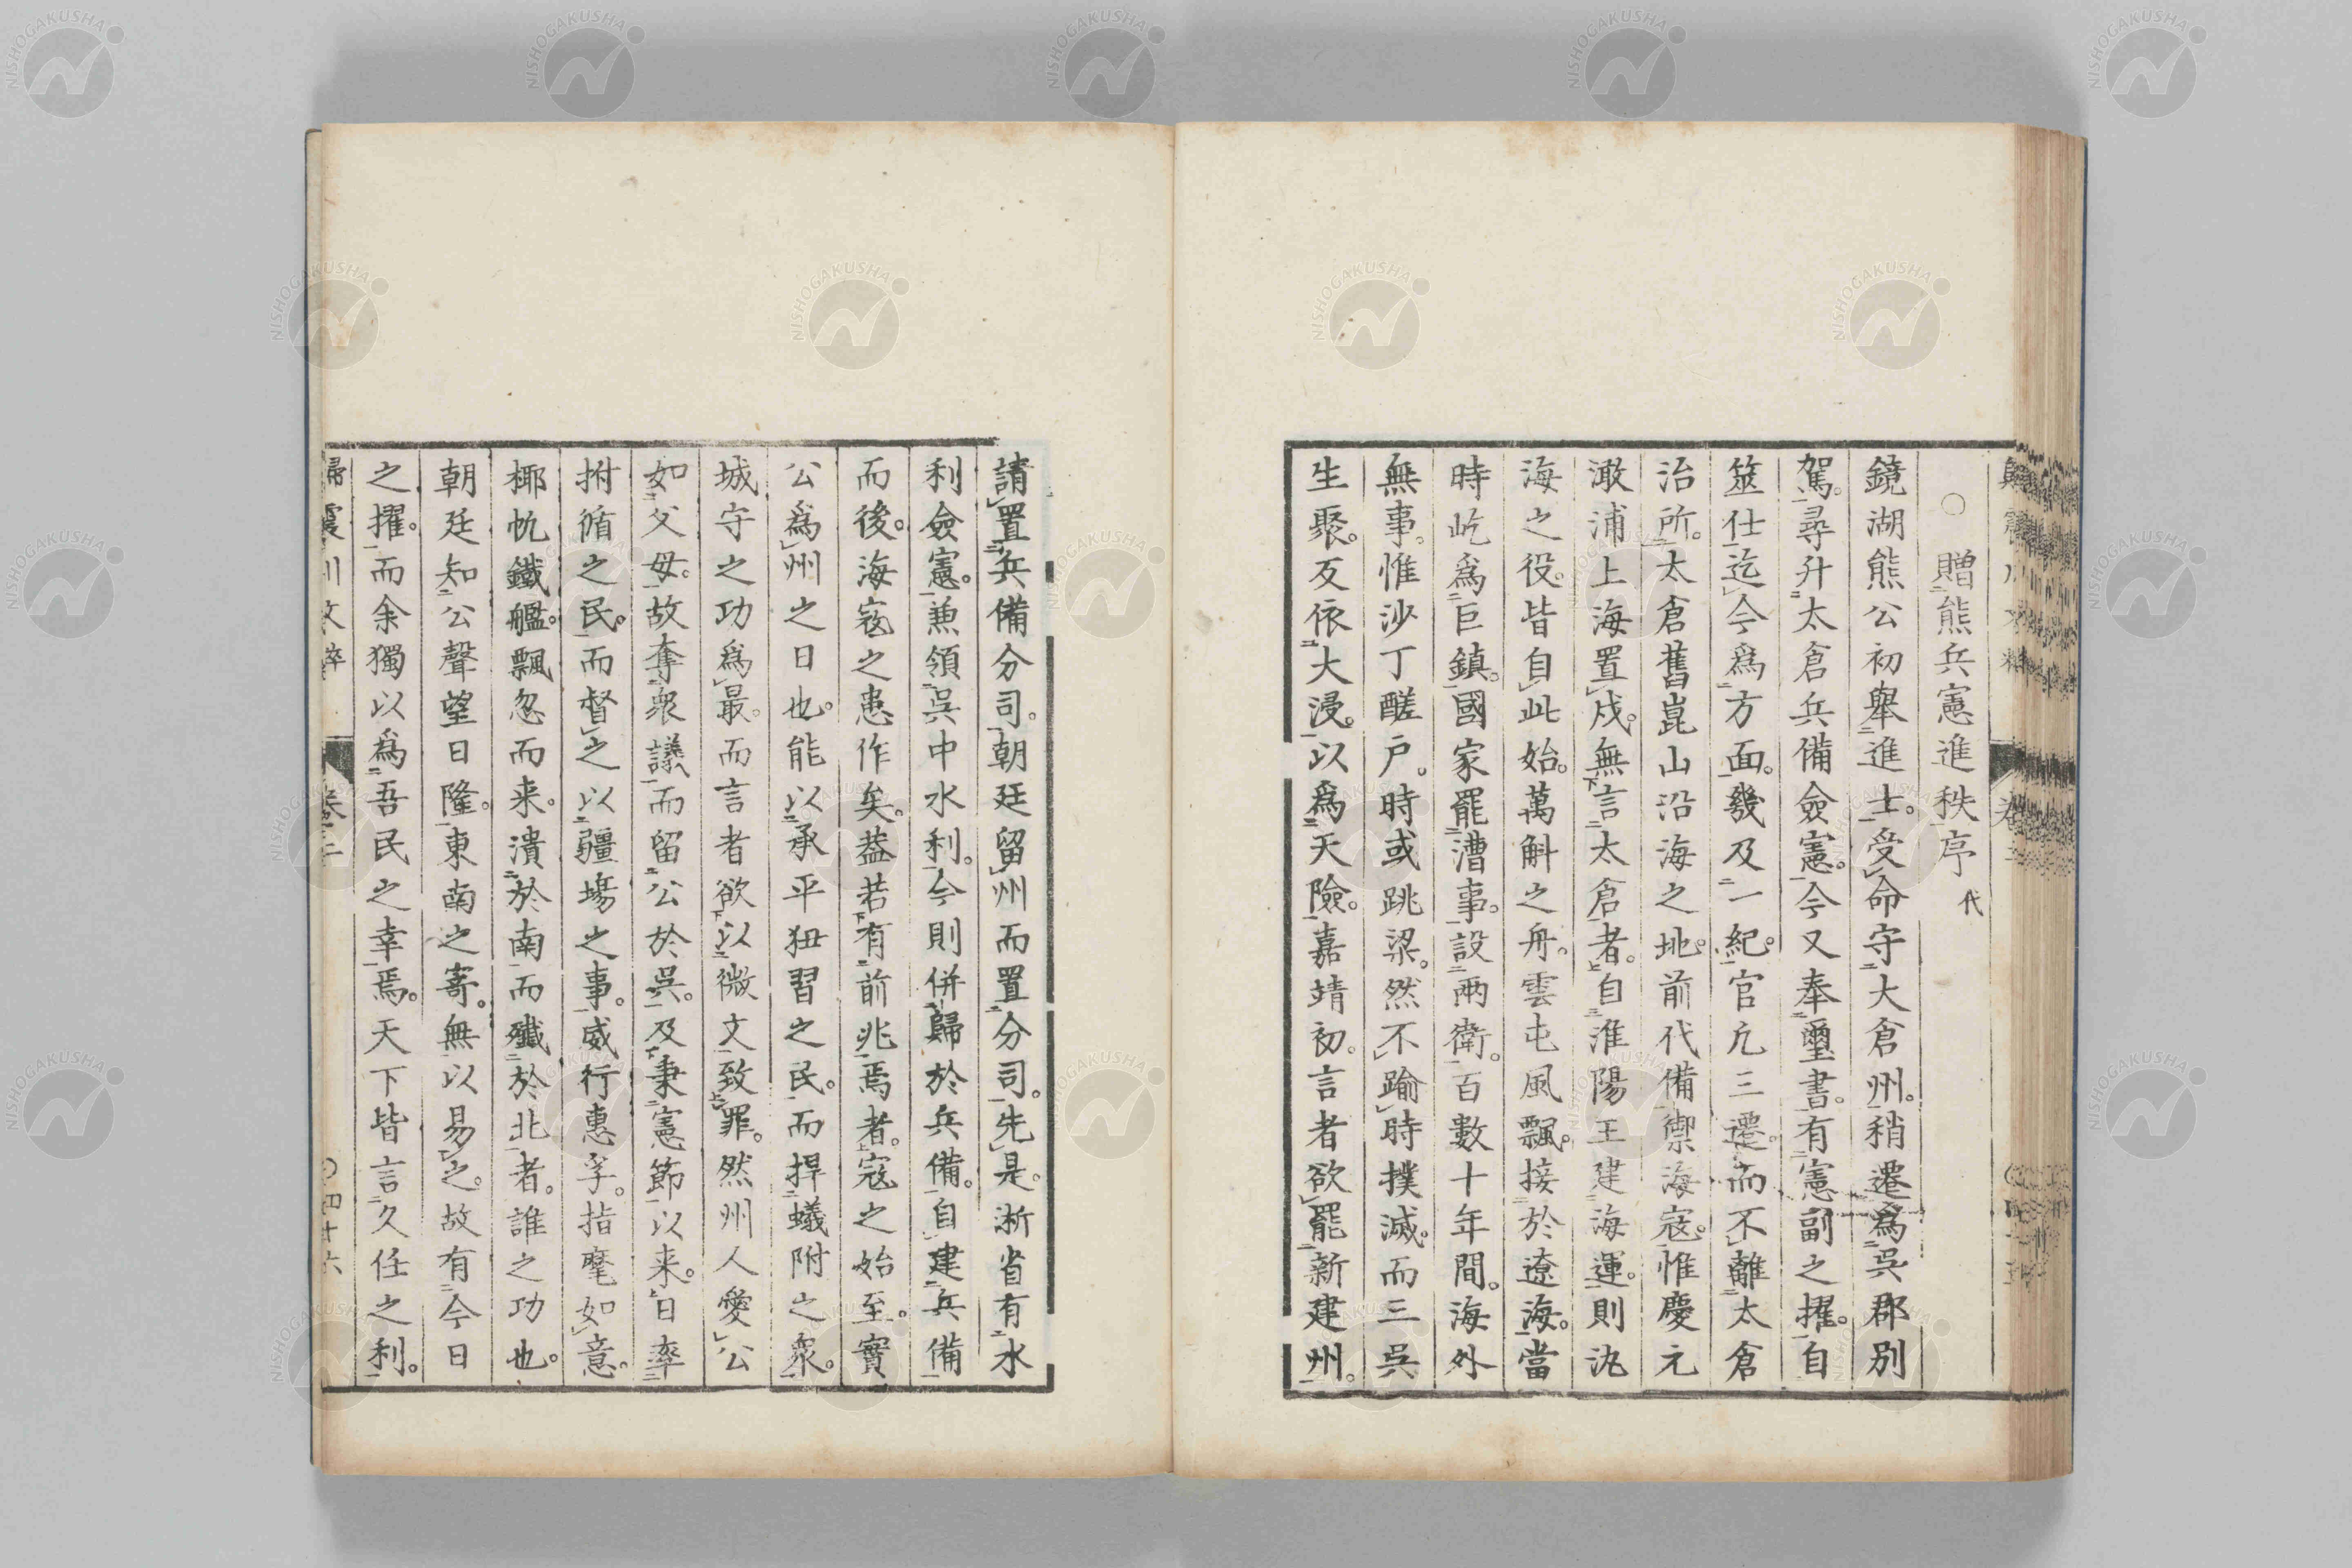 ○贈熊兵憲進秩序 代
鏡湖熊公初舉進士。受命守大倉州。稍遷爲吳郡別
駕。尋升太倉兵備僉憲。今又奉璽書。有憲副之擢。自
筮仕迄今爲方面。幾及一紀。官凢三遷。而不離太倉
治所。太倉舊崑山沿海之地。前代備禦海寇。惟慶元
澉浦上海置戍。無言太倉者。自淮陽王建海運。則沇
海之役。皆自此始。萬斛之舟。雲屯風飄。接於遼海。當
時屹爲巨鎮。國家罷漕事。設兩衛。百數十年間。海外
無事。惟沙丁醝户。時或跳梁。然不踰時撲滅。而三吳
生聚。反依大浸。以爲天險。嘉靖初。言者欲罷新建州。
請置兵備分司。朝廷留州而置分司。先是。浙省有水
利僉憲。兼領吳中水利。今則併歸於兵備。自建兵備
而後。海寇之患作矣。葢若有前兆焉者。寇之始至。實
公爲州之日也。能以承平狃習之民。而捍蟻附之衆。
城守之功爲最。而言者欲以微文致罪。然州人愛公
如父母。故奪衆議而留公於吳。及秉憲節以来。日率
拊循之民。而督之以疆場之事。威行惠孚。指麾如意。
椰帆鐵艦。飄忽而来。潰於南而殲於北者。誰之功也。
朝廷知公聲望日隆。東南之寄。無以易之。故有今日
之擢。而余獨以爲吾民之幸焉。天下皆言久任之利。
歸震川文粹 卷二 ○四十六